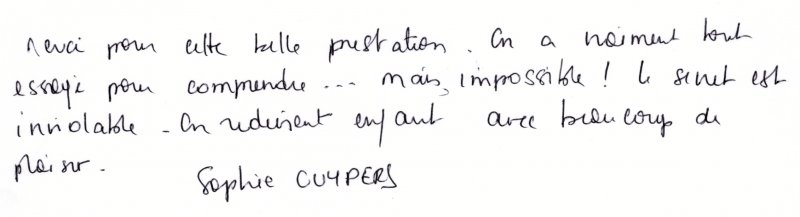 Merci pour cette belle prestation. On a vraiment tout
essayé pour comprendre ... mais, impossible ! Le secret est
inviolable - On redevient enfant avec beaucoup de
plaisir.
Sophie CUYPERS